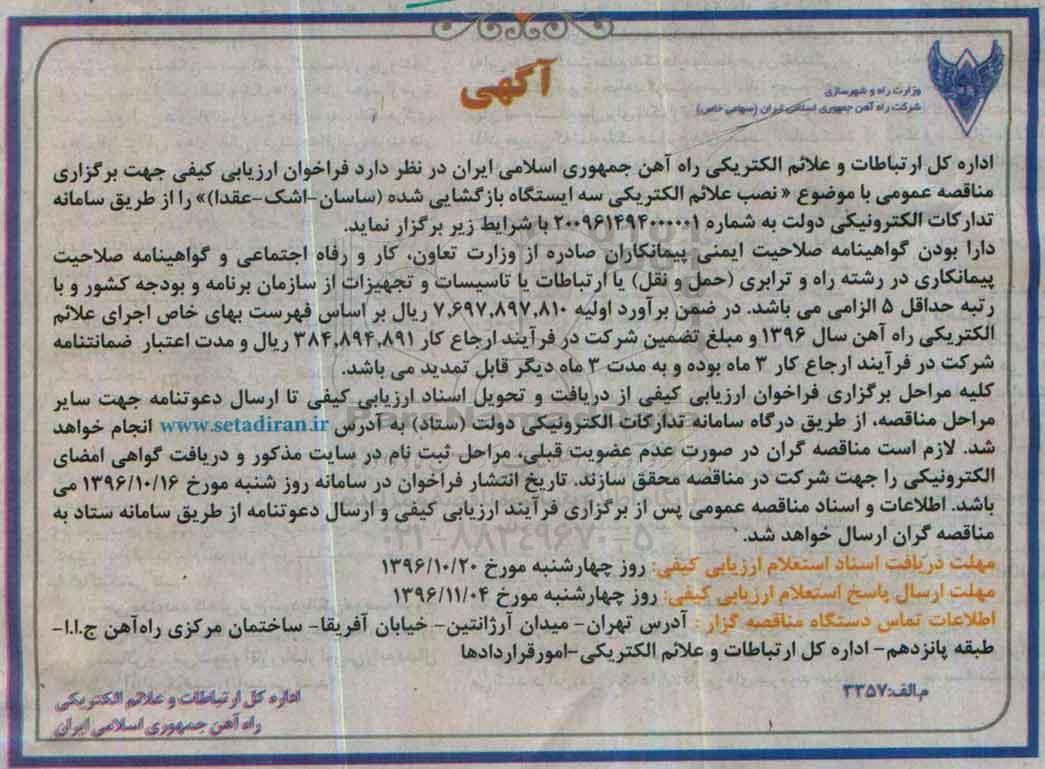 آگهی
وزارت راه و شهرسازی
شرکت راه آهن جمهوری اسلامی ایران (سهامی خاص)
اداره کل ارتباطات و علائم الکتریکی راه آهن جمهوری اسلامی ایران در نظر دارد فراخوان ارزیابی کیفی جهت برگزاری
مناقصه عمومی با موضوع « نصب علائم الکتریکی سه ایستگاه بازگشایی شده (ساسان-اشک-عقدا)» را از طریق سامانه
تدارکات الکترونیکی دولت به شماره ۲۰۰۹۶۱۴۹۴۰۰۰۰۰۱ با شرایط زیر برگزار نماید.
دارا بودن گواهینامه صلاحیت ایمنی پیمانکاران صادره از وزارت تعاون، کار و رفاه اجتماعی و گواهینامه صلاحیت
پیمانکاری در رشته راه و ترابری (حمل و نقل) یا ارتباطات یا تاسیسات و تجهیزات از سازمان برنامه و بودجه کشور و با
رتبه حداقل ۵ الزامی می باشد. در ضمن برآورد اولیه ۷,۶۹۷,۸۹۷,۸۱۰ ریال بر اساس فهرست بهای خاص اجرای علائم
الکتریکی راه آهن سال ۱۳۹۶ و مبلغ تضمین شرکت در فرآیند ارجاع کار ۳۸۴,۸۹۴,۸۹۱ ریال و مدت اعتبار ضمانتنامه
شرکت در فرآیند ارجاع کار ۳ ماه بوده و به مدت ۳ ماه دیگر قابل تمدید می باشد.
کلیه مراحل برگزاری فراخوان ارزیابی کیفی از دریافت و تحویل اسناد ارزیابی کیفی تا ارسال دعوتنامه جهت سایر
مراحل مناقصه، از طریق درگاه سامانه تدارکات الکترونیکی دولت (ستاد) به آدرس www.setadiran.ir انجام خواهد
شد. لازم است مناقصه گران در صورت عدم عضویت قبلی، مراحل ثبت نام در سایت مذکور و دریافت گواهی امضای
الکترونیکی را جهت شرکت در مناقصه محقق سازند. تاریخ انتشار فراخوان در سامانه روز شنبه مورخ ۱۳۹۶/۱۰/۱۶ می
باشد. اطلاعات و اسناد مناقصه عمومی پس از برگزاری فرآیند ارزیابی کیفی و ارسال دعوتنامه از طریق سامانه ستاد به
مناقصه گران ارسال خواهد شد.
مهلت دریافت اسناد استعلام ارزیابی کیفی: روز چهارشنبه مورخ ۱۳۹۶/۱۰/۲۰
مهلت ارسال پاسخ استعلام ارزیابی کیفی: روز چهارشنبه مورخ ۱۳۹۶/۱۱/۰۴
اطلاعات تماس دستگاه مناقصه گزار : آدرس تهران- میدان آرژانتین- خیابان آفریقا- ساختمان مرکزی راه‌آهن ج.ا.ا-
طبقه پانزدهم- اداره کل ارتباطات و علائم الکتریکی-امورقراردادها
م.الف:۳۳۵۷
اداره کل ارتباطات و علائم الکتریکی
راه آهن جمهوری اسلامی ایران
ParsNamadData
۰۲۱-۸۸۳۴۹۶۷۰-۵